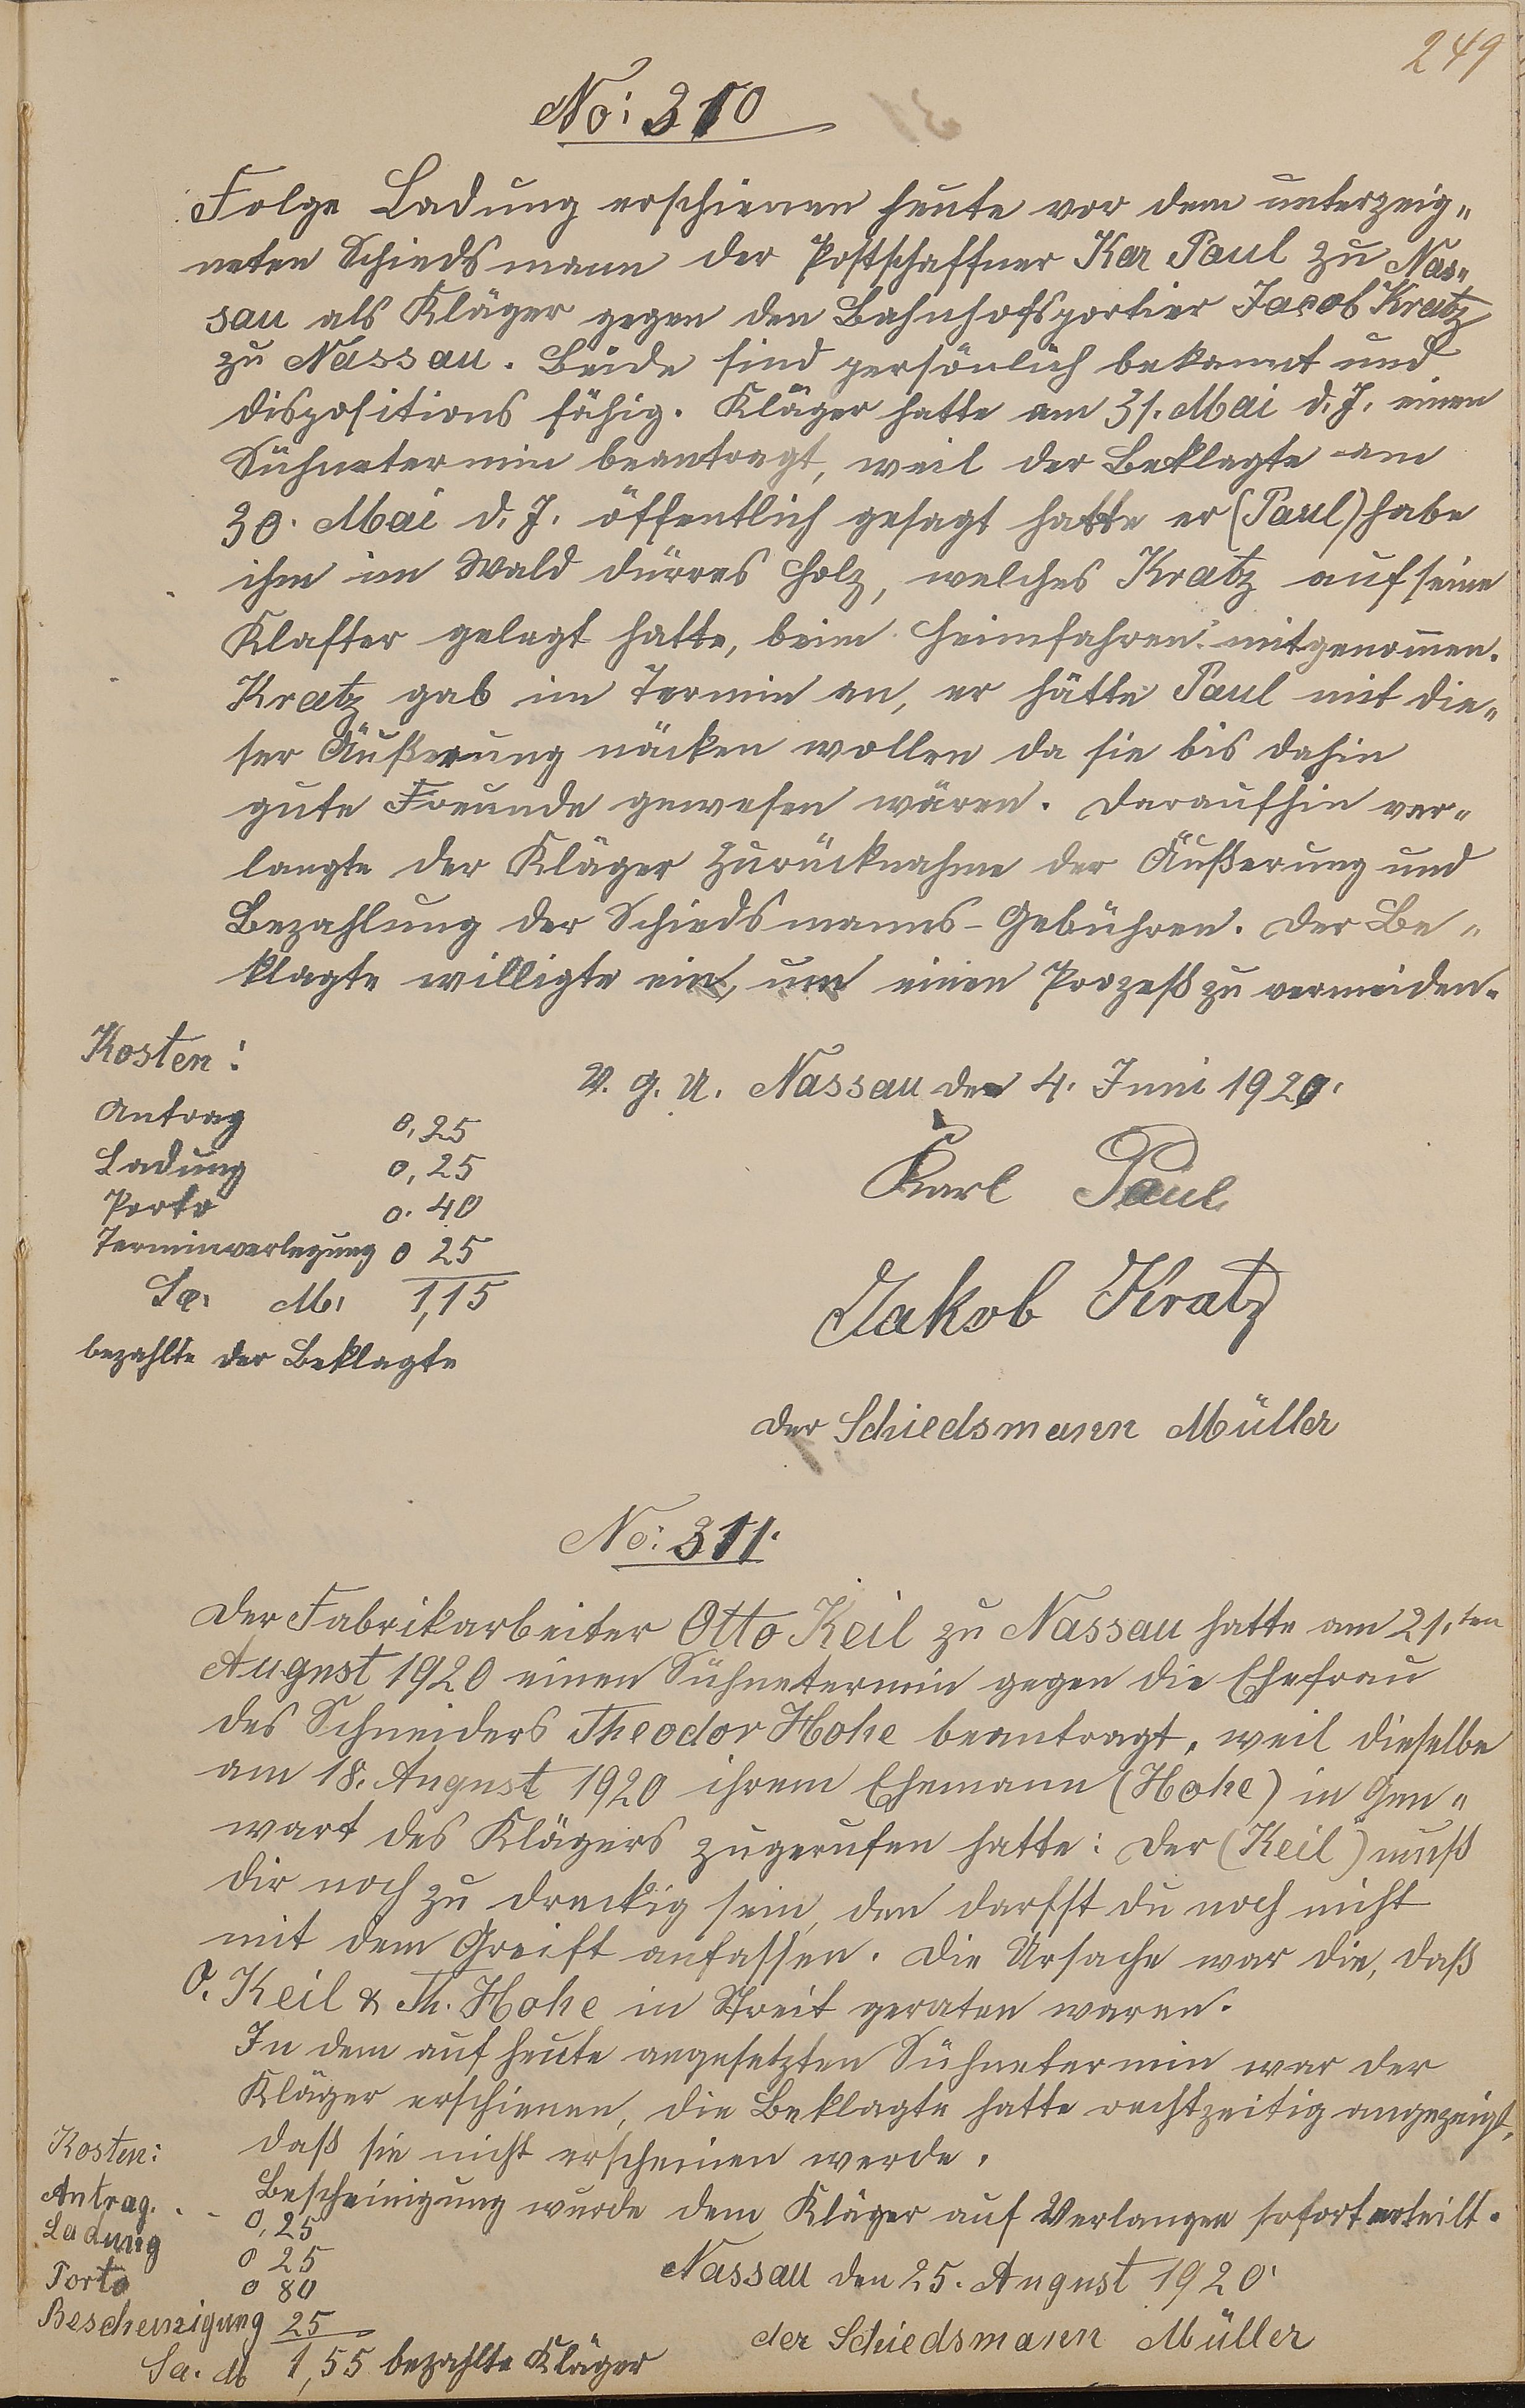 249
No: 310
Folge Ladung erschienen heute vor dem unterzeig„
neten Schiedsmann der Postschaffner Kar Paul zu Nas„
sau als Kläger gegen den Bahnhofsportier Jacob Kratz
zu Nassau. Beide sind persönlich bekannt und
dispositions fähig. Kläger hatte am 31. Mai d. J. einen
Sühnetermin beantragt, weil der Beklagte am
30. Mai d. J. öffentlich gesagt hatte er (Paul) habe
ihm im Wald dürres Holz, welches Kratz auf seine
Klafter gelegt hatte, beim Heimfahren mitgenom̅en.
Kratz gab im Termin an, er hätte Paul mit die„
ser Äußerung näcken wollen da sie bis dahin
gute Freunde gewesen wären. Daraufhin ver„
langte der Kläger Zurücknahme der Äußerung und
Bezahlung der Schiedsmanns-Gebühren. Der Be„
klagte willigte ein, um einen Prozeß zu vermeiden.
V. g. U. Nassau den 4. Juni 1920.
Karl Paul
Jakob Kratz
der Schiedsmann Müller
Kosten:
Antrag 0,25
Ladung 0,25
Porto 0.40
Terminverlegung 0 25
Sa. M. 1,15
bezahlte der Beklagte
No: 311.
Der Fabrikarbeiter Otto Keil zu Nassau hatte am 21.ten
August 1920 einen Sühnetermin gegen die Ehefrau
des Schneiders Theodor Hohe beantragt, weil dieselbe
am 18. August 1920 ihrem Ehemann (Hohe) in Gen„
wart des Klägers zugerufen hatte: Der (Keil) muß
dir noch zu dreckig sein, den darfst du noch nicht
mit dem Greift anfassen. Die Ursache war die, daß
O. Keil & Th. Hohe in Streit geraten waren.
In dem auf heute angesetzten Sühnetermin war der
Kläger erschienen, die Beklagte hatte rechtzeitig angezeigt,
daß sie nicht erscheinen werde.
Bescheinigung wurde dem Kläger auf Verlangen sofort erteilt.
Nassau den 25. August 1920
der Schiedsmann Müller
Kosten:
Antrag. . - 0,25
Ladung 0 25
Porto 0 80
Bescheinigung 25
Sa. M 1,55 bezahlte Kläger